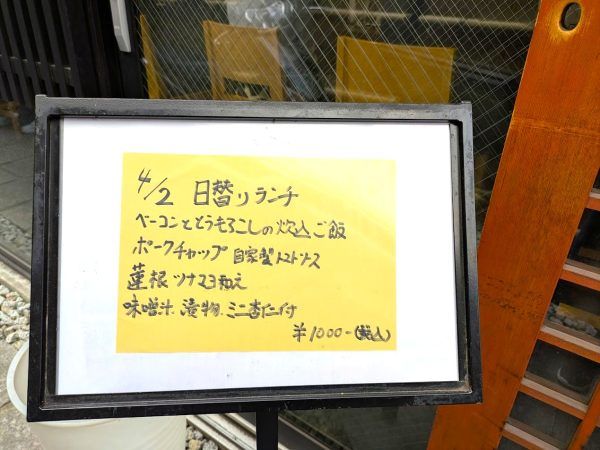 4/2 日替りランチ
ベーコンととうもろこしの炊込ご飯
ポークチャップ 自家製トマトソース
蓮根ツナマヨ和え
味噌汁、漬物、ミニ杏仁付
¥1000-(税込)